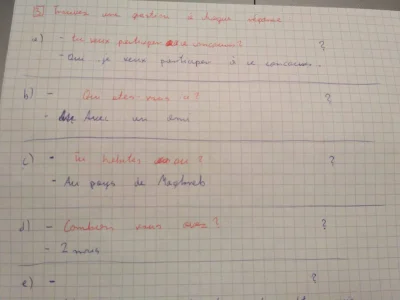 5) Trouver une question à chaque réponse
a) - Tu veux participer à ce concours? ?
- Oui je veux participer à ce concours.
b) - ?
- Avec un ami
c) - Tu habites où? ?
- Au pays de Maghreb
d) - Combien ? ?
- 2 mois
e) - ?